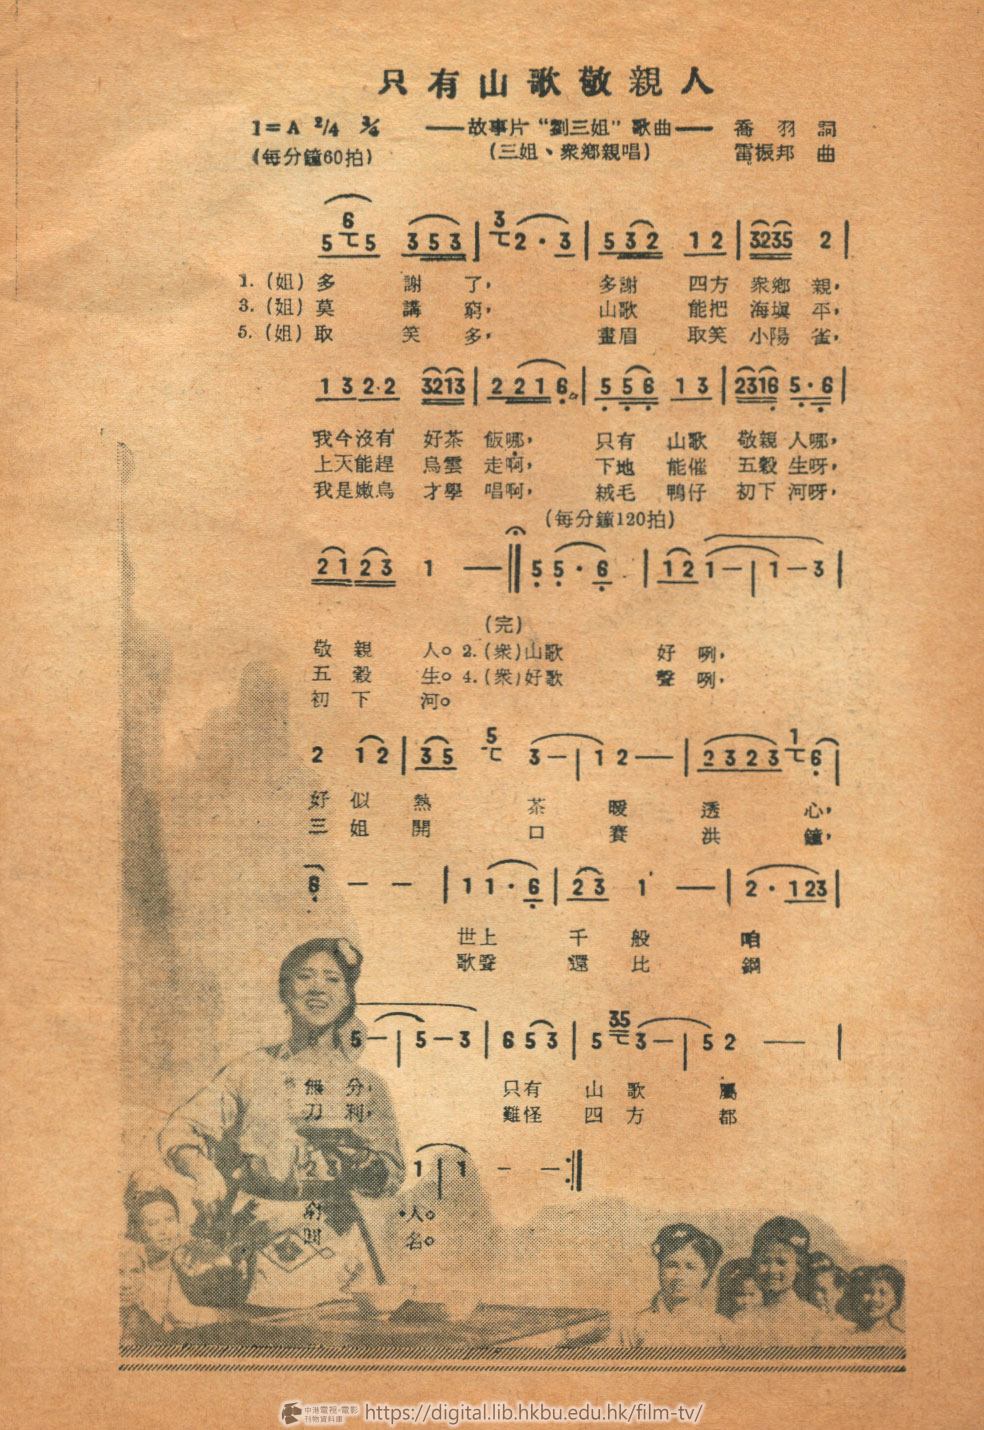 只有山歌敬親人
1=A 2/4 3/4 ——故事片“劉三姐”歌曲—— 喬羽 詞
(每分鐘60拍) (三姐、衆鄉親唱) 雷振邦 曲
5 6 5 3 5 3 | 3 2 · 3 | 5 3 2 1 2 | 3235 2 |
1. (姐) 多 謝 了, 多謝 四方 衆鄉 親,
3. (姐) 莫 講 窮, 山歌 能把 海塡 平,
5. (姐) 取 笑 多, 畫眉 取笑 小陽 雀,
1 3 2·2 3213 | 2 2 1 6 | 5 5 6 1 3 | 2316 5·6 |
我今沒有 好茶 飯哪, 只有 山歌 敬親 人哪,
上天能趕 烏雲 走啊, 下地 能催 五穀 生呀,
我是嫩鳥 才學 唱啊, 絨毛 鴨仔 初下 河呀,
(每分鐘120拍)
2 1 2 3 1 — ‖ 5 5 · 6 | 1 2 1 — | 1 — 3 |
(完)
敬 親 人。 2. (衆) 山歌 好 咧,
五 穀 生。 4. (衆) 好歌 聲 咧,
初 下 河。
2 1 2 | 3 5 5 3 — | 1 2 — | 2 3 2 3 1 6 |
好 似 熱 茶 暖 透 心,
三 姐 開 口 賽 洪 鐘,
6 — — | 1 1 · 6 | 2 3 1 — | 2 · 1 2 3 |
世上 千 般 咱
歌聲 還 比 鋼
5 — | 5 — 3 | 6 5 3 | 5 35 3 — | 5 2 — |
無 分, 只有 山 歌 屬
刀 利, 難怪 四 方 都
2 3 1 | 1 — — :‖
人。
名。
中港電視·電影
刊物資料庫
https://digital.lib.hkbu.edu.hk/film-tv/